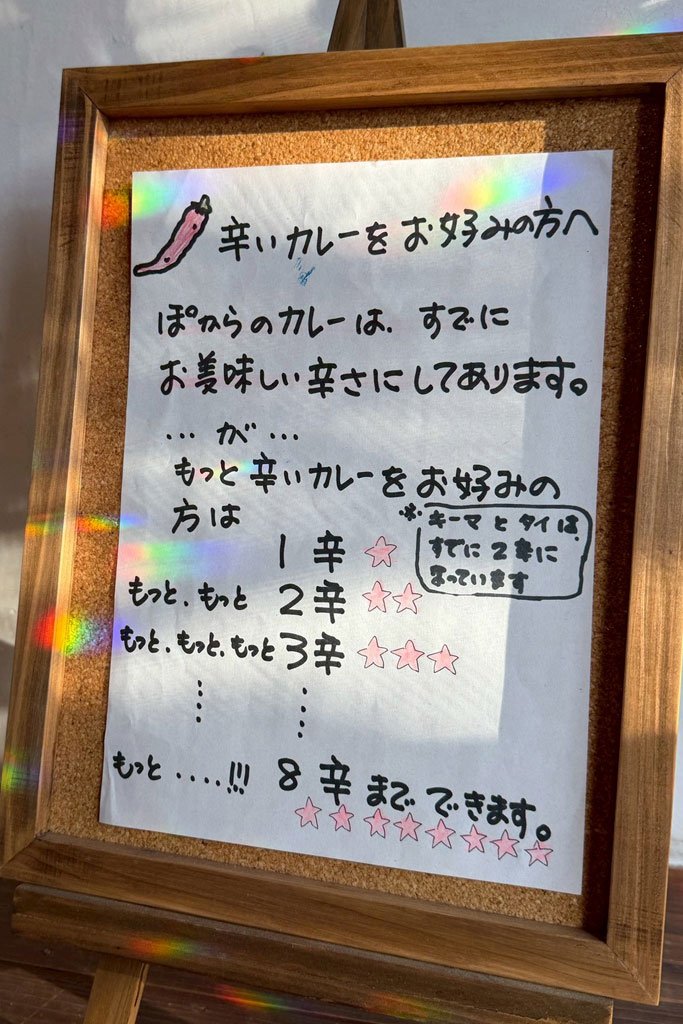 辛いカレーをお好みの方へ
ぽからのカレーは、すでに
お美味しい辛さにしてあります。
…が…
もっと辛いカレーをお好みの
方は
※キーマとタイは、
すでに2辛に
なっています
1辛 ☆
もっと、もっと 2辛 ☆☆
もっと、もっと、もっと 3辛 ☆☆☆
もっと ....!!! 8辛までできます。
☆☆☆☆☆☆☆☆